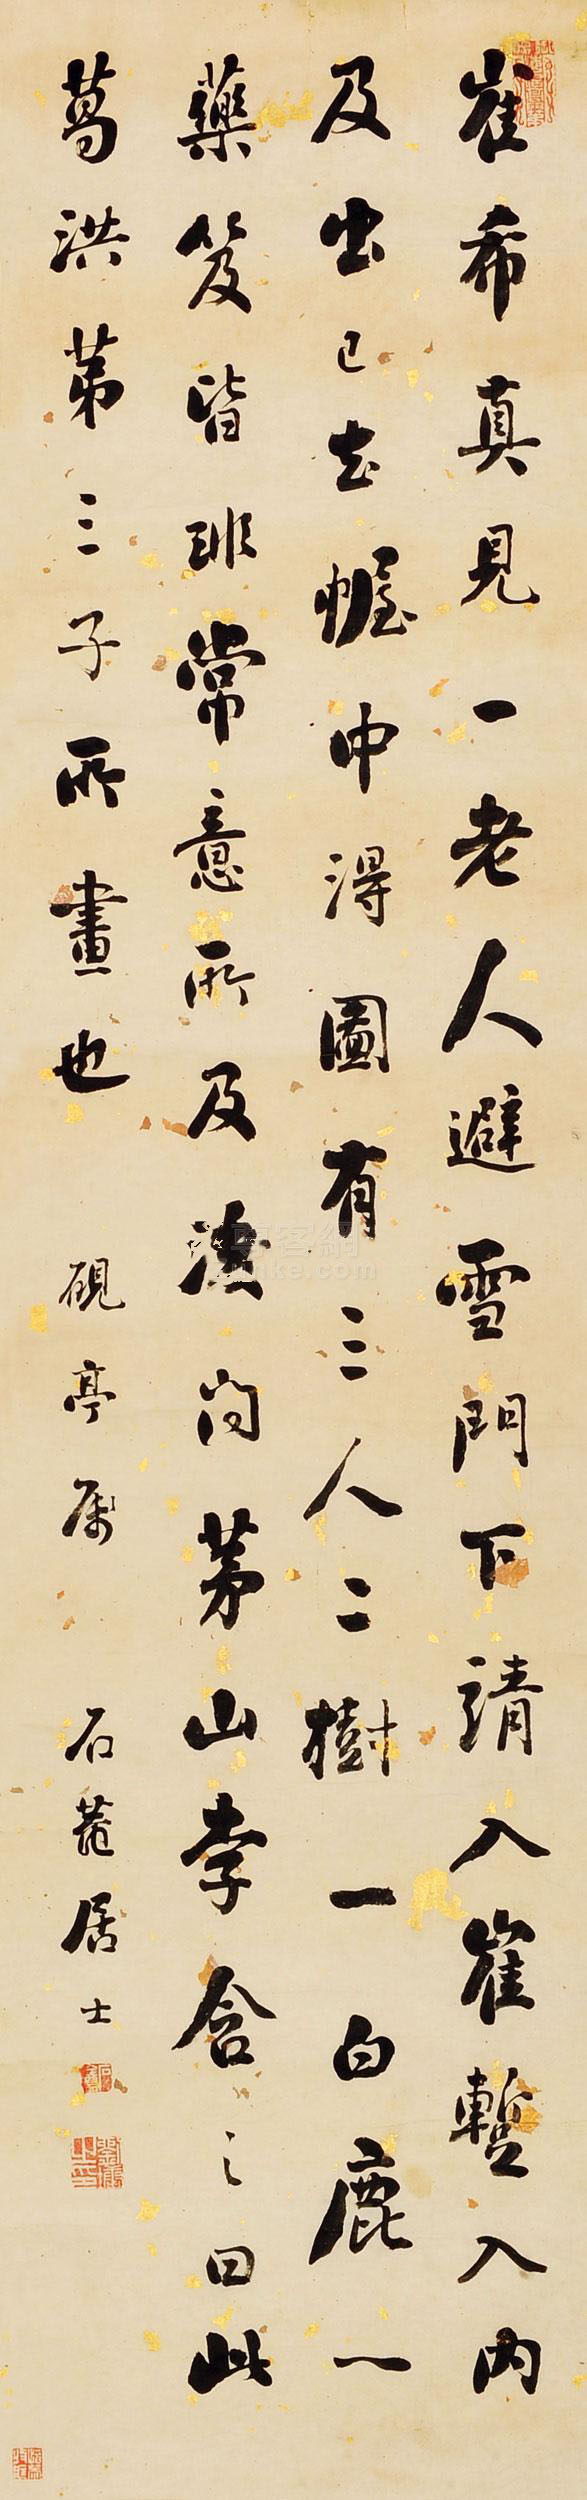 崔希真見一老人避雪門下請入崔暫入內
及出已去幄中得圖有三人二樹一白鹿一
藥笈皆非常意所及後問茅山李含之曰此
葛洪第三子所畫也 硯亭屬 石菴居士